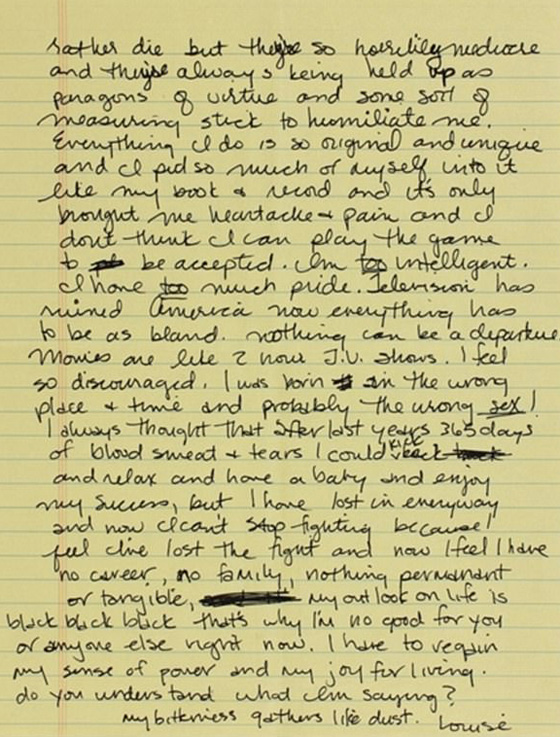 rather die but they're so horribly mediocre
and they're always being held up as
paragons of virtue and some sort of
measuring stick to humiliate me.
Everything I do is so original and unique
and I put so much of myself into it
like my book & record and it's only
brought me heartache & pain and I
dont think I can play the game
to be accepted. Im too intelligent.
I have too much pride. Television has
ruined America now everything has
to be as bland. nothing can be a departure
Movies are like 2 hour T.V. shows. I feel
so discouraged. I was born in the wrong
place & time and probably the wrong sex!
I always thought that after last years 365 days
of blood sweat & tears I could kick back
and relax and have a baby and enjoy
my success, but I have lost in everyway
and now I can't stop fighting because I
feel Ive lost the fight and now I feel I have
no career, no family, nothing permanant
or tangible, my outlook on life is
black black black that's why I'm no good for you
or anyone else right now. I have to regain
my sense of power and my joy for living.
do you understand what Im saying?
my bitterness gathers like dust. Louise